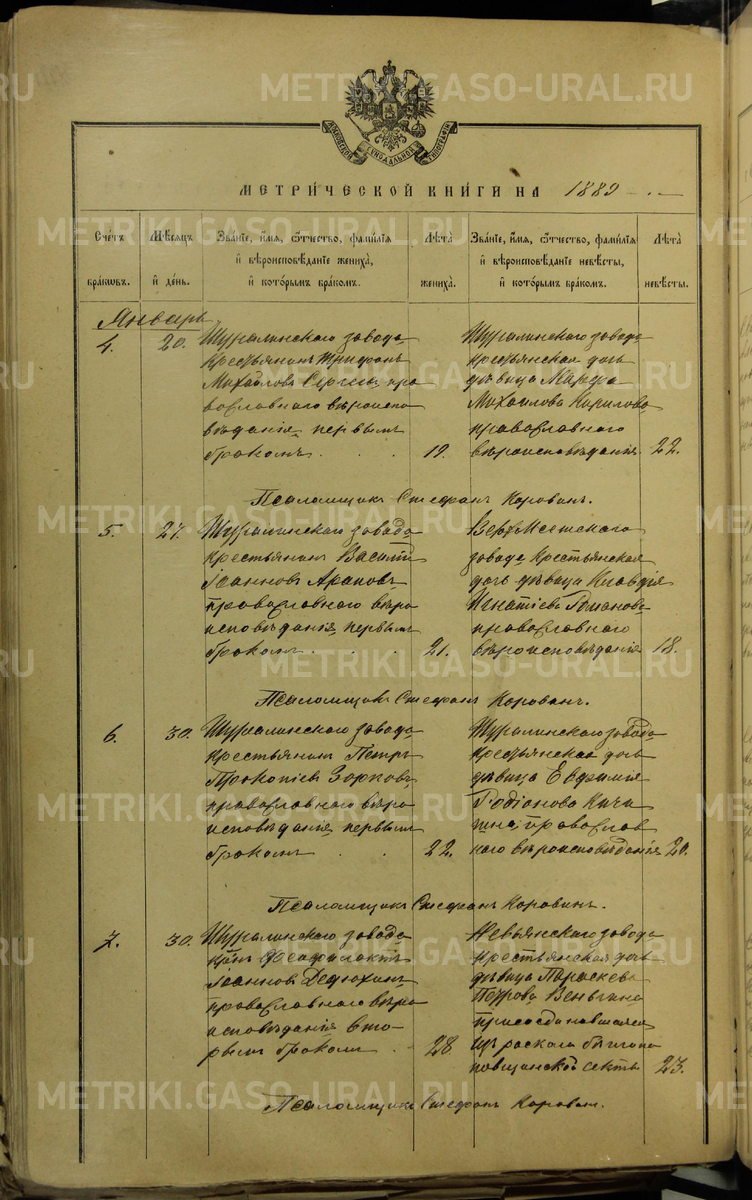 МОСКОВСКОЙ СѴНОДАЛЬНОЙ ТИПОГРАФІИ
МЕТРИ́ЧЕСКОЙ КНИ́ГИ НА 1889
Сче́тъ бра́ковъ.
Мѣ́сяцъ и҆ де́нь.
Зва́нїе, и҆́мѧ, ѻ҆́тчество, фамѵ́лїѧ и҆ вѣроисповѣ́данїе жениха̀, и҆ кото́рымъ бра́комъ.
Лѣ̑та жениха̀.
Зва́нїе, и҆́мѧ, ѻ҆́тчество, фамѵ́лїѧ и҆ вѣроисповѣ́данїе невѣ́сты, и҆ кото́рымъ бра́комъ.
Лѣ̑та невѣ́сты.
Январь
4. 20. Шуралинскаго завода
крестьянинъ Трифонъ
Михайловъ Сергеевъ пра
вославнаго вѣроиспо
вѣданія, первымъ
бракомъ. 19.
Шуралинскаго завода
крестьянская дочь
дѣвица Марѳа
Михайлова Кирилова
православнаго
вѣроисповѣданія 22.
Псаломщикъ Стефанъ Коровинъ.
5. 27. Шуралинскаго завода
крестьянинъ Василій
Іоанновъ Араповъ
православнаго вѣро
исповѣданія, первымъ
бракомъ 21.
Верхъисетскаго
завода крестьянская
дочь дѣвица Клавдія
Игнатіева Романова
православнаго
вѣроисповѣданія 18.
Псаломщикъ Стефанъ Коровинъ.
6. 30. Шуралинскаго завода
крестьянинъ Петръ
Прокопіевъ Зорковъ
православнаго вѣро
исповѣданія, первымъ
бракомъ 22.
Шуралинскаго завода
крестьянская дочь
дѣвица Евѳимія
Родіонова Кича
православ
наго вѣроисповѣданія 20.
Псаломщикъ Стефанъ Коровинъ.
7. 30. Шуралинскаго завода
Ѳеофилактъ
Іоанновъ Дедюхинъ
православнаго вѣро
исповѣданія вто
рымъ бракомъ 28
Невьянскаго завода
крестьянская дочь
дѣвица Параскева
Петрова Веньгина
присоединившаяся
изъ раскола бѣглопо
повщинской секты 23.
Псаломщикъ Стефанъ Коровинъ.
METRIKI.GASO-URAL.RU